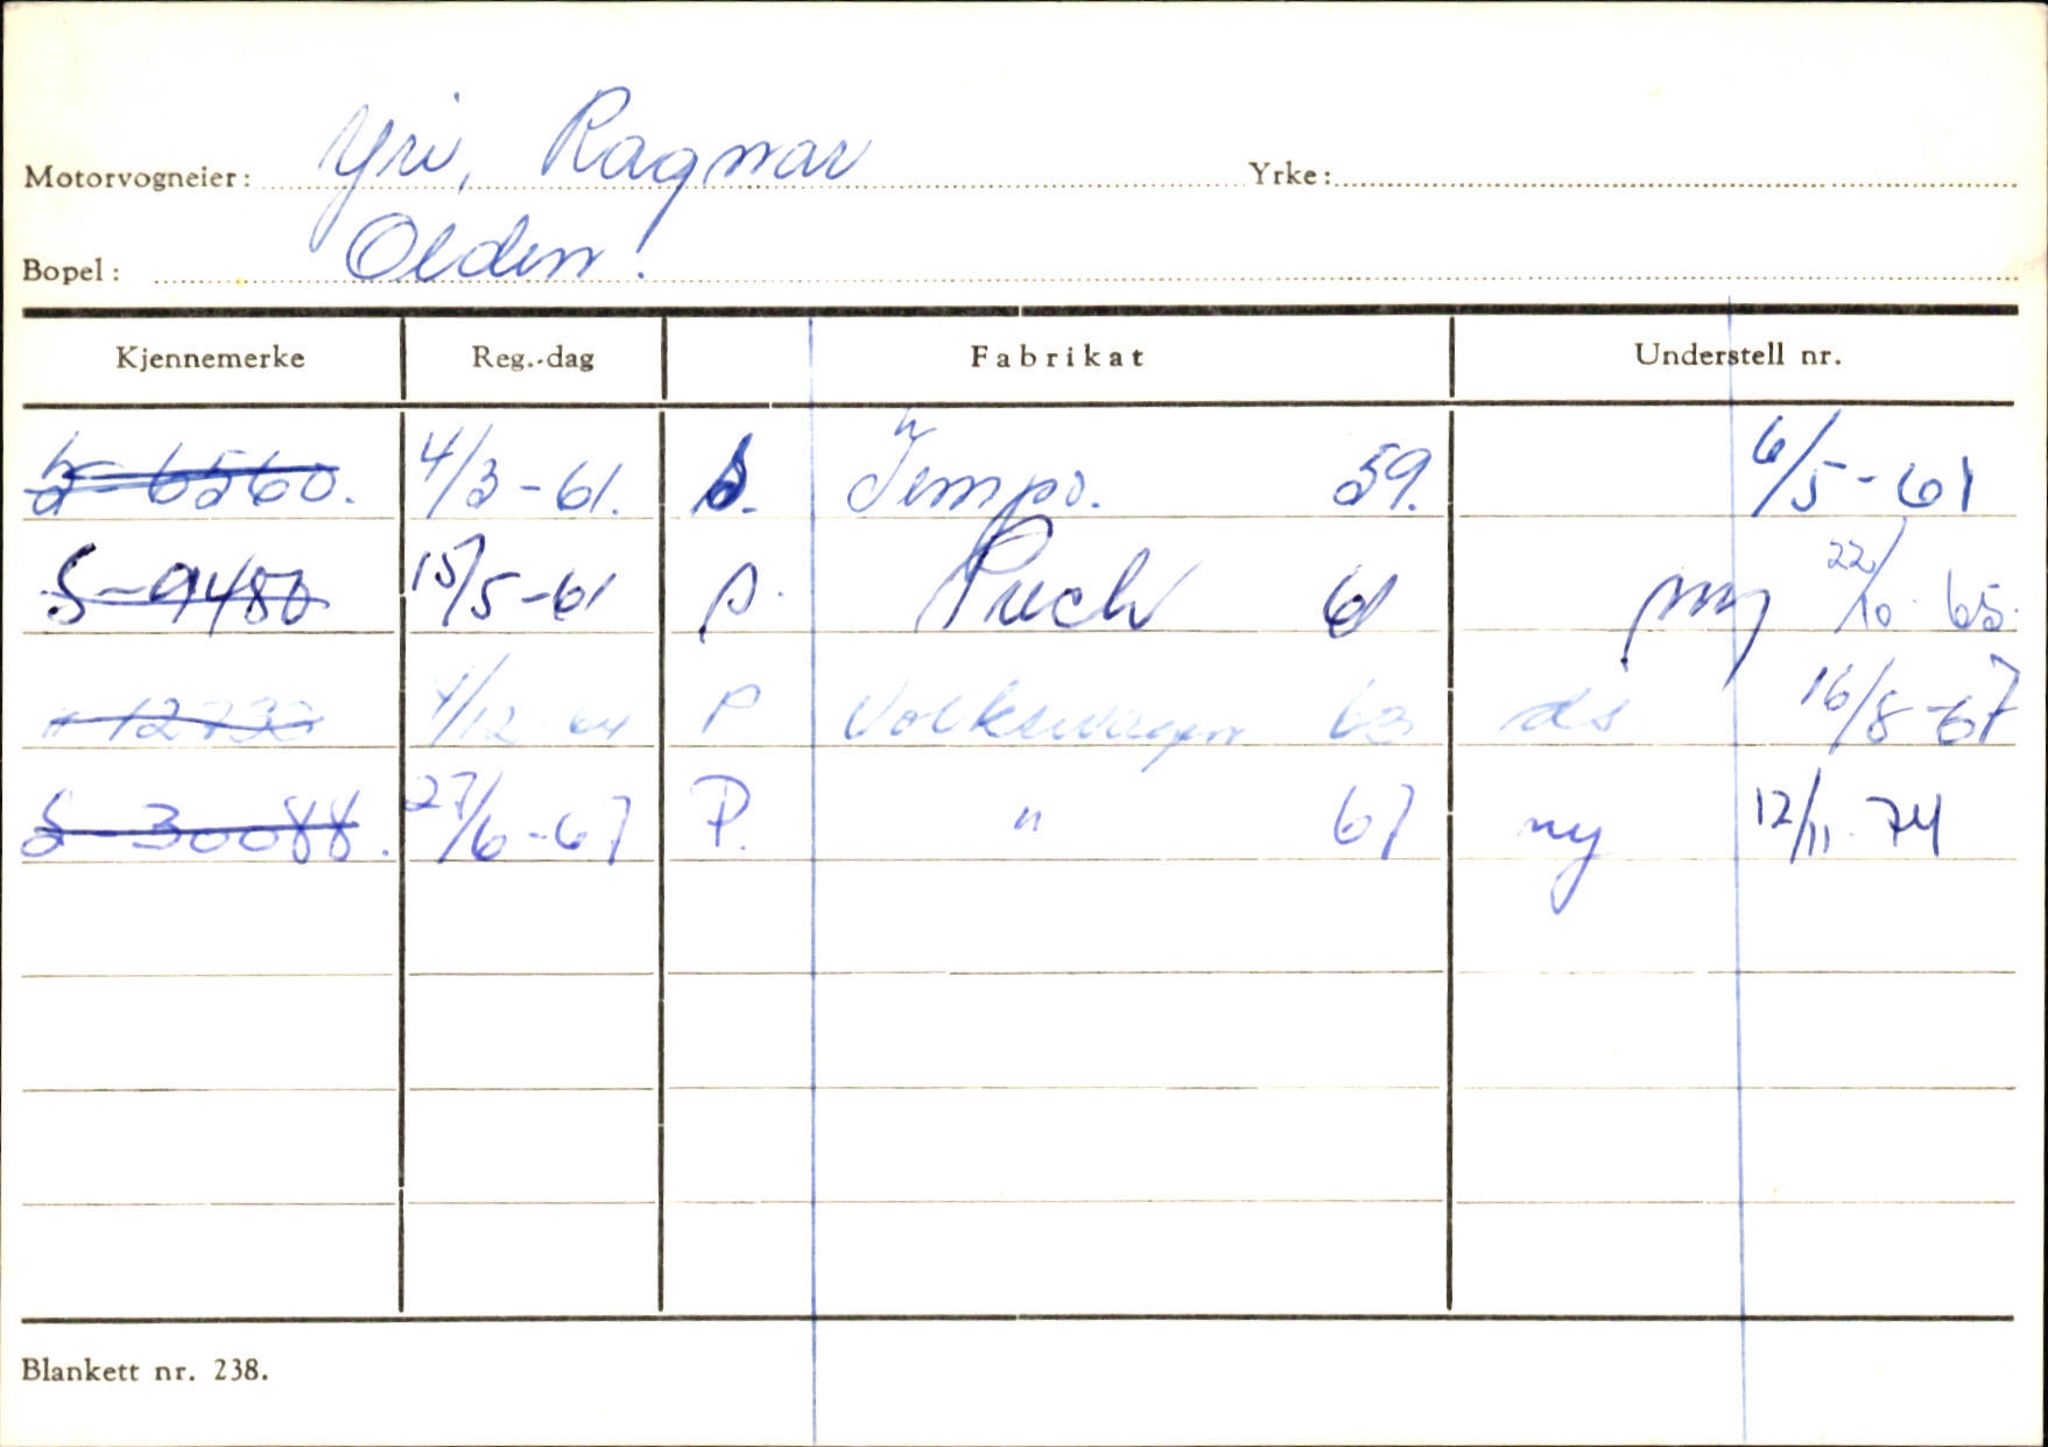 Motorvogneier: Yri, Ragnar Yrke:
Bopel: Olden.
Kjennemerke Reg.-dag Fabrikat Understell nr.
S-6560. 4/3-61. S. Tempo. 59. 6/5-61
S-9480 15/5-61 p. Puch 61 ny 22/10 65.
" 12732 4/12-64 P Volkswagen 63 ds 16/8-67
S-30088. 27/6-67 P. " 67 ny 12/11-74
Blankett nr. 238.